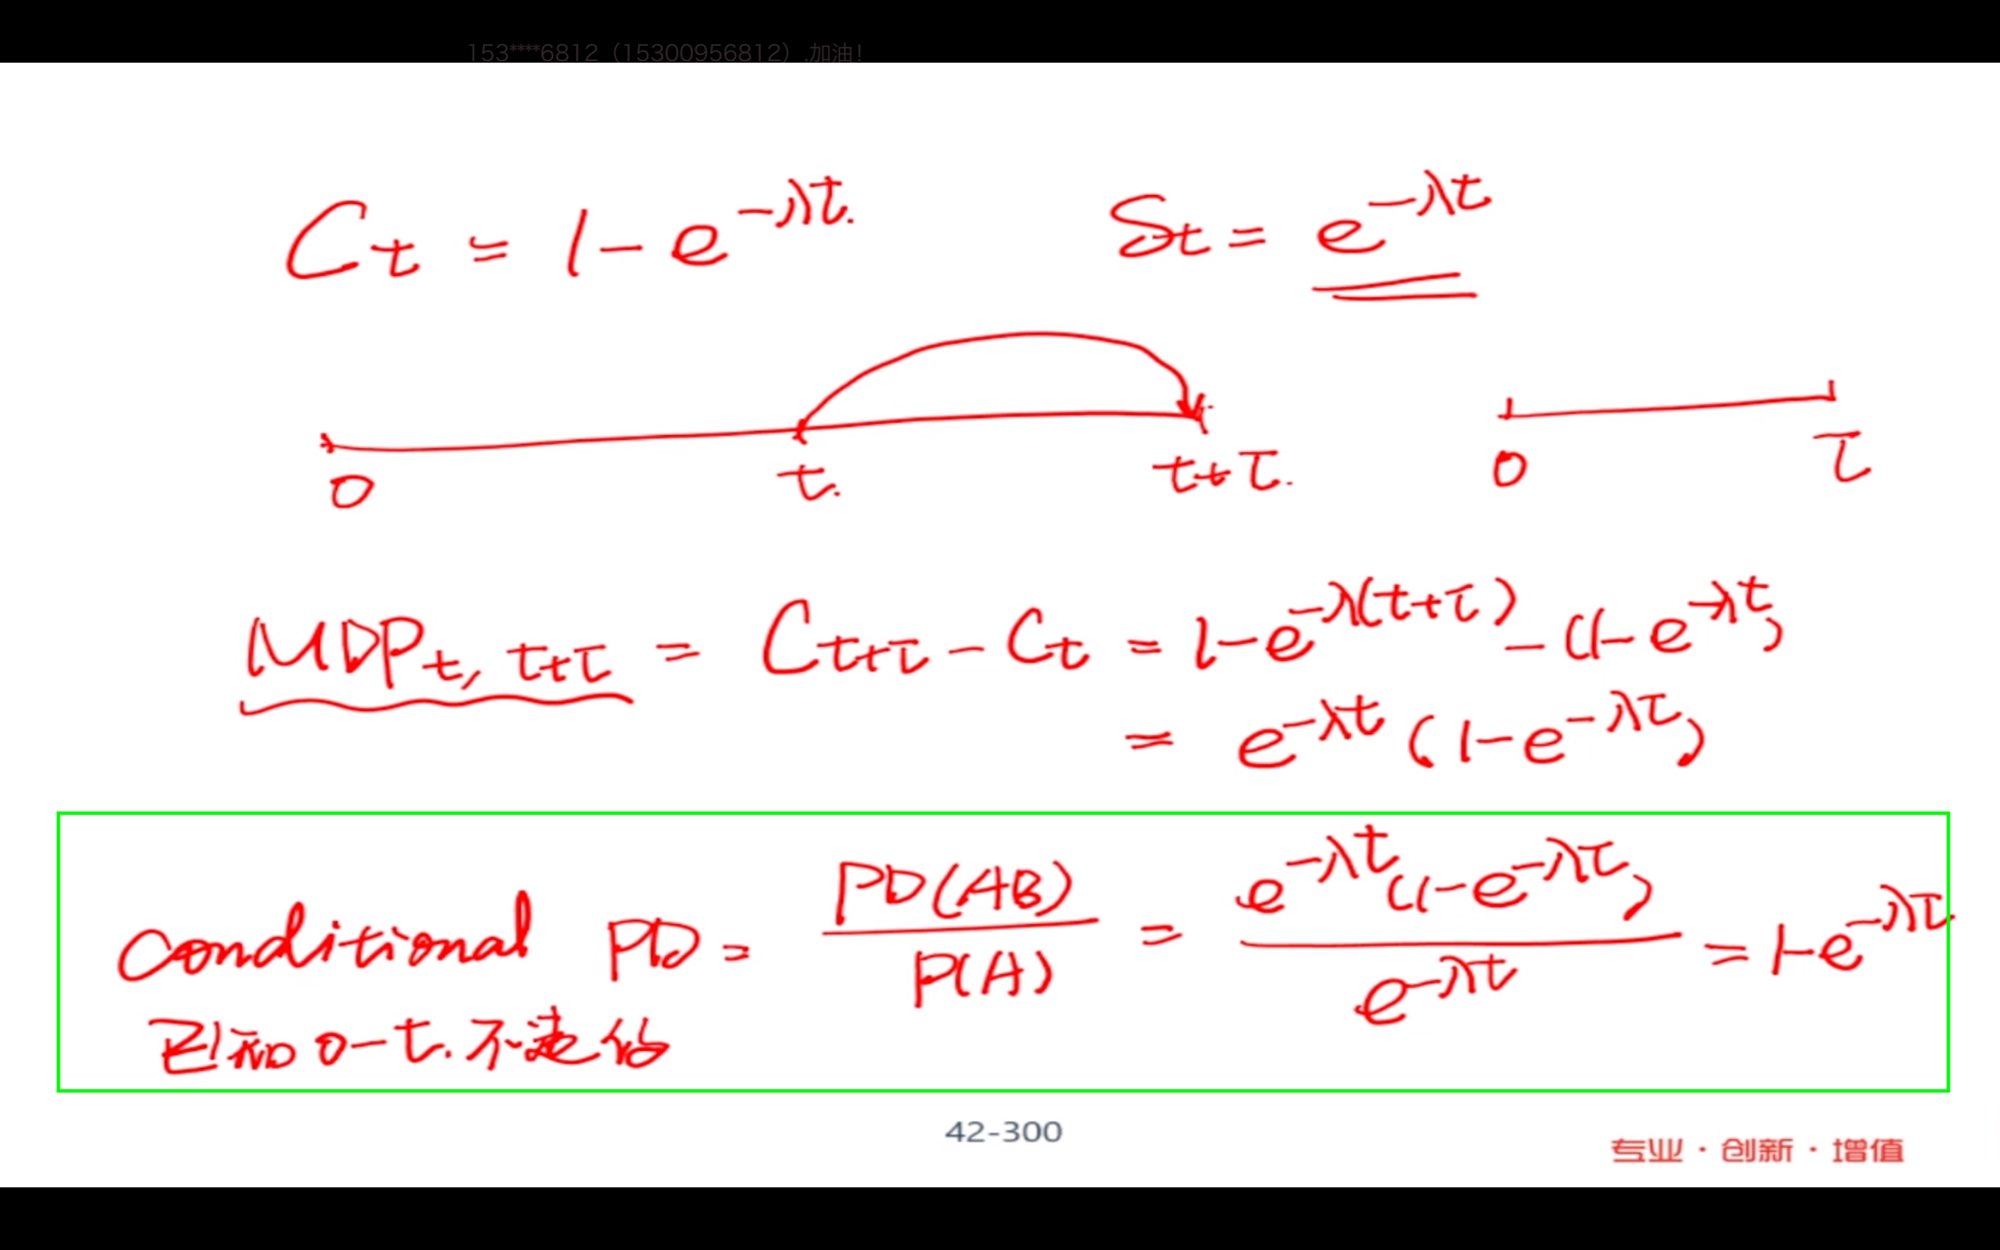 153****6812（15300956812）.加油！
Ct = 1-e^{-λt}. St = e^{-λt}
0 t. t+τ. 0 τ
MDP_{t, t+τ} = C_{t+τ} - C_t = 1-e^{-λ(t+τ)} - (1-e^{-λt})
= e^{-λt} (1-e^{-λτ})
conditional PD = PD(AB)/P(A) = e^{-λt}(1-e^{-λτ})/e^{-λt} = 1-e^{-λτ}
已知 0-t. 不违约
42-300
专业·创新·增值